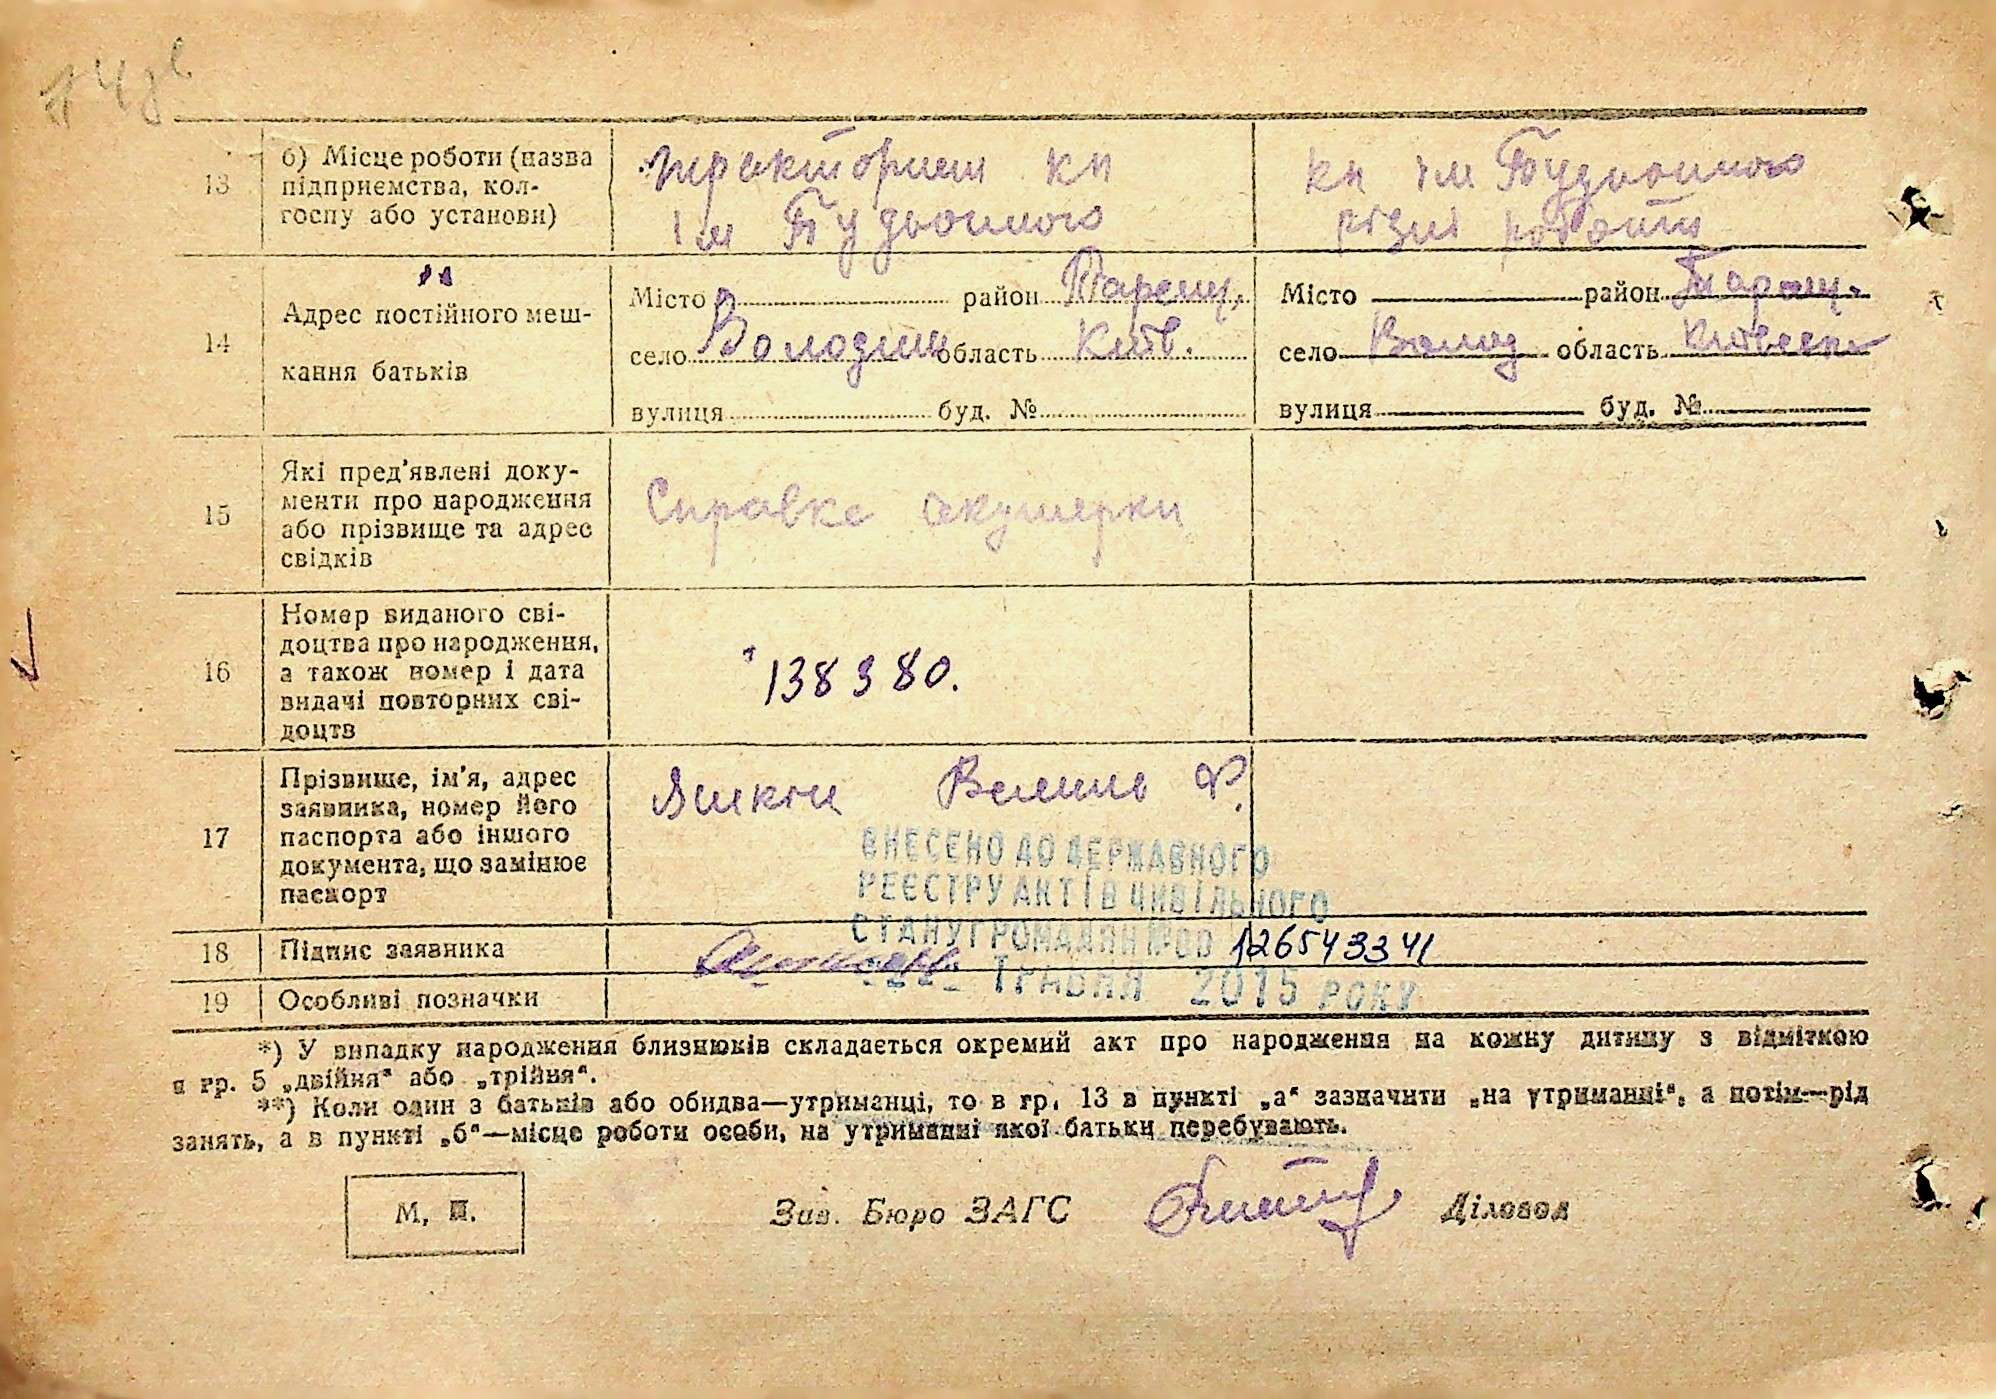 13
б) Місце роботи (назва
підприємства, кол-
госпу або установи)
тракторист кп
ім Будьоного
кп ім Будьоного
різні роботи
14
Адрес постійного меш-
кання батьків
Місто район Таращ.
село Володим область Київ.
вулиця буд. №
Місто район Таращ.
село Волод область Київськ
вулиця буд. №
15
Які пред'явлені доку-
менти про народження
або прізвище та адрес
свідків
Справка акушерки
16
Номер виданого сві-
доцтва про народження,
а також номер і дата
видачі повторних сві-
доцтв
138980.
17
Прізвище, ім'я, адрес
заявника, номер його
паспорта або іншого
документа, що замінює
паспорт
Василь Ф.
ВНЕСЕНО ДО ДЕРЖАВНОГО
РЕЄСТРУ АКТІВ ЦИВІЛЬНОГО
СТАНУ ГРОМАДЯН № 00126543341
ТРАВНЯ 2015 РОКУ
18
Підпис заявника
19
Особливі позначки
*) У випадку народження близнюків складається окремий акт про народження на кожну дитину з відміткою
в гр. 5 „двійня" або „трійня".
**) Коли один з батьків або обидва—утриманці, то в гр. 13 в пункті „а" зазначити „на утриманні", а потім—рід
занять, а в пункті „б"—місце роботи особи, на утриманні якої батьки перебувають.
М. П.
Зав. Бюро ЗАГС
Діловод